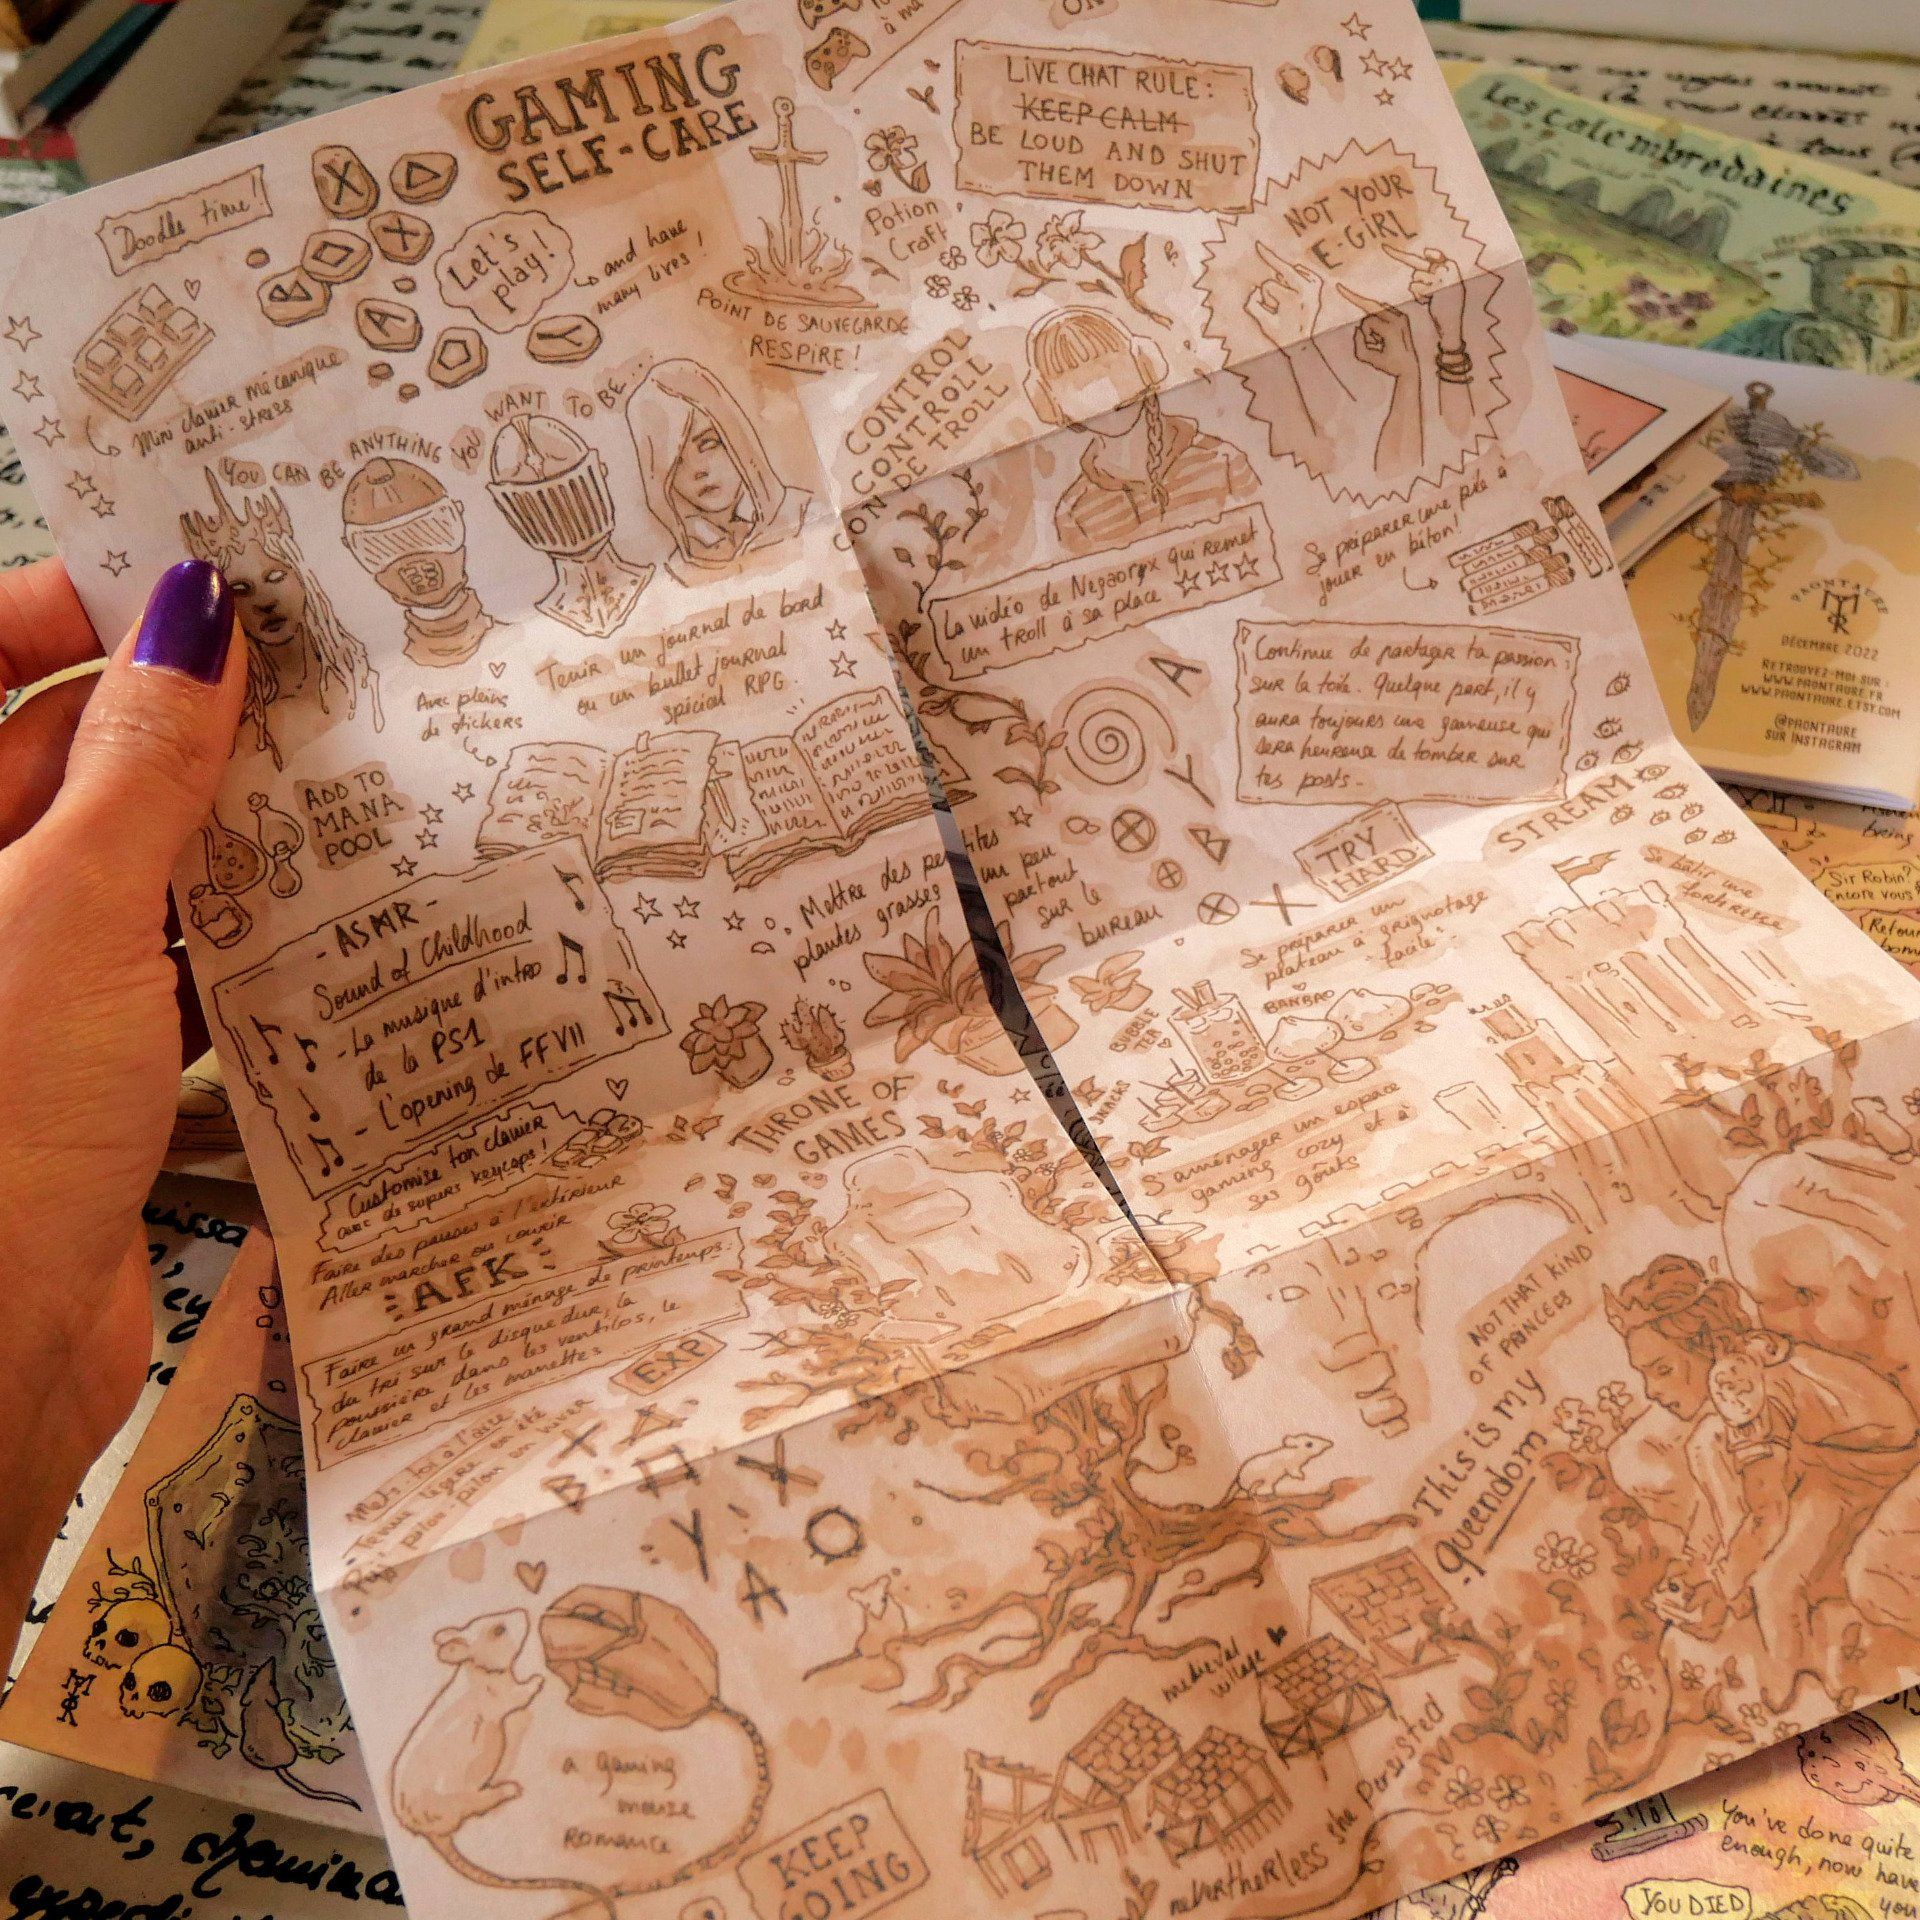 GAMING
SELF-CARE
Doodle time!
X
X
B
A
Y
Let's
play!
and have
many lives!
Mini clavier mécanique
anti-stress
YOU CAN BE ANYTHING YOU WANT TO BE...
POINT DE SAUVEGARDE
RESPIRE!
à ma
ON
LIVE CHAT RULE:
KEEP CALM
BE LOUD AND SHUT
THEM DOWN
Potion
Craft
NOT YOUR
E-GIRL
CONTROL
CONTROLL
CON DE TROLL
La vidéo de Negaoryx qui remet
un troll à sa place
Se préparer une pile à
jouer en béton!
Tenir un journal de bord
ou un bullet journal
spécial RPG.
Avec pleins
de stickers
ADD TO
MANA
POOL
Continue de partager ta passion
sur la toile. Quelque part, il y
aura toujours une gameuse qui
sera heureuse de tomber sur
tes posts.
A
Y
B
X
TRY
HARD
STREAM
Mettre des petites
plantes grasses
un peu
partout
sur le
bureau
- ASMR -
Sound of Childhood
- La musique d'intro
de la PS1
- L'opening de FFVII
Customise ton clavier
avec de supers keycaps!
Se préparer un
plateau à grignotage
facile:
BUBBLE
TEA
BANBAO
SNACKS
Se bâtir une
forteresse
S'aménager un espace
gaming cozy et à
ses goûts
THRONE OF
GAMES
Faire des pauses à l'extérieur
Aller marcher ou courir
AFK
Faire un grand ménage de printemps:
du tri sur le disque dur, la
poussière dans les ventilos, le
clavier et les manettes
EXP
Mets-toi à l'aise
- Tenue légère en été
pilou en hiver
X
B
Y
Y
A
O
NOT THAT KIND
OF PRINCESS
This is my
queendom
a gaming
mouse
romance
KEEP
GOING
medieval
village
nevertheless she persisted
Les calembredaines
PHONTAURE
DÉCEMBRE 2022
RETROUVEZ-MOI SUR:
WWW.PHONTAURE.FR
WWW.PHONTAURE.ETSY.COM
@PHONTAURE
SUR INSTAGRAM
being
Sir Robin?
Encore vous
Retour
You've done quite
enough, now have
you
YOU DIED